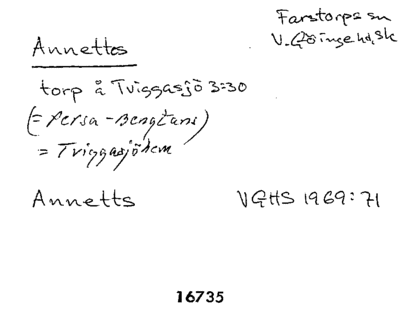 Farstorps sn
V. Göinge hd, Sk
Annettes
torp å Tviggasjö 3:30
(= Persa-Bengtans)
= Tviggasjöhem
Annetts VGHS 1969:71
16735